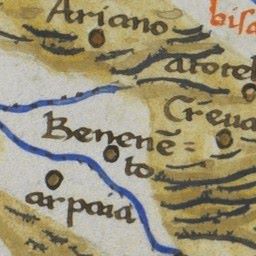 Ariano
bisa
atorel
Creua
Benenē=
to
arpaia